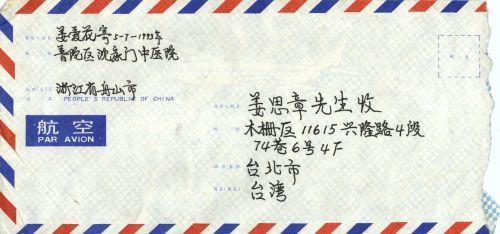 姜爱花寄 5-7-1993年
普陀区沈家门中医院
浙江省舟山市
PEOPLE'S REPUBLIC OF CHINA
航空
PAR AVION
姜思章先生收
木栅区11615兴隆路4段
74巷6号4F
台北市
台湾